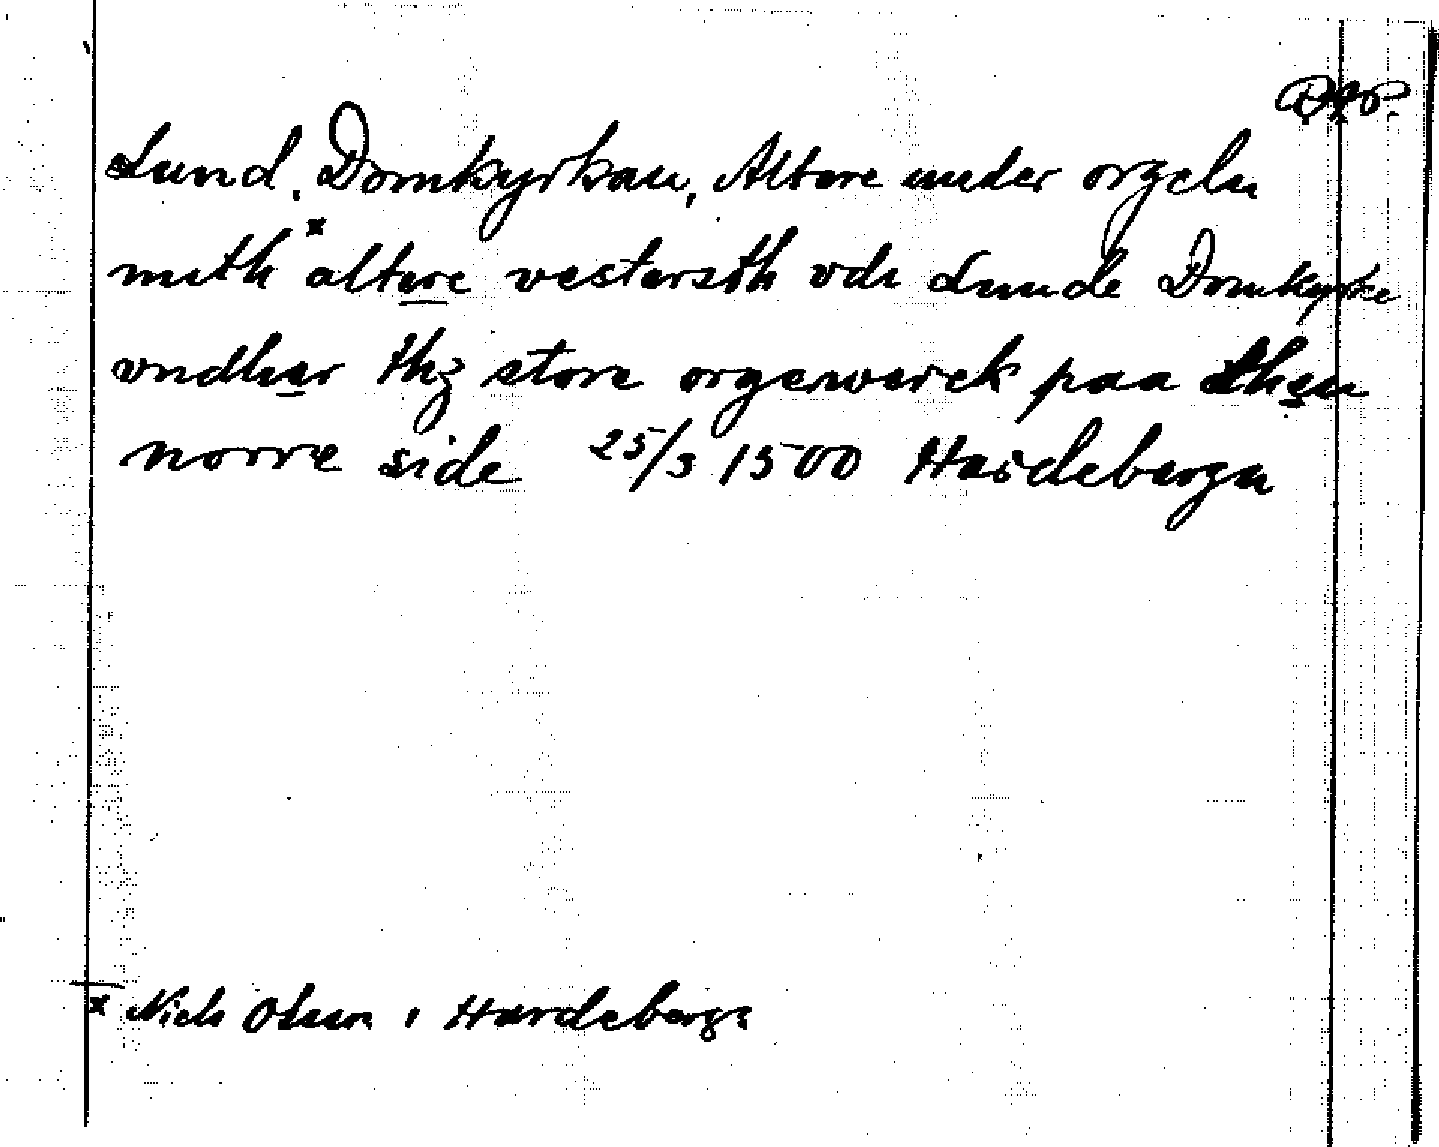 Lund. Domkyrkan, Altare under orgeln
mith x altare vestersth vdi Lunde Domkyrke
vndher thz store orgerwerck paa then
norre side 25/3 1500 Hardeberga
x Niels Olsen i Hardeberge